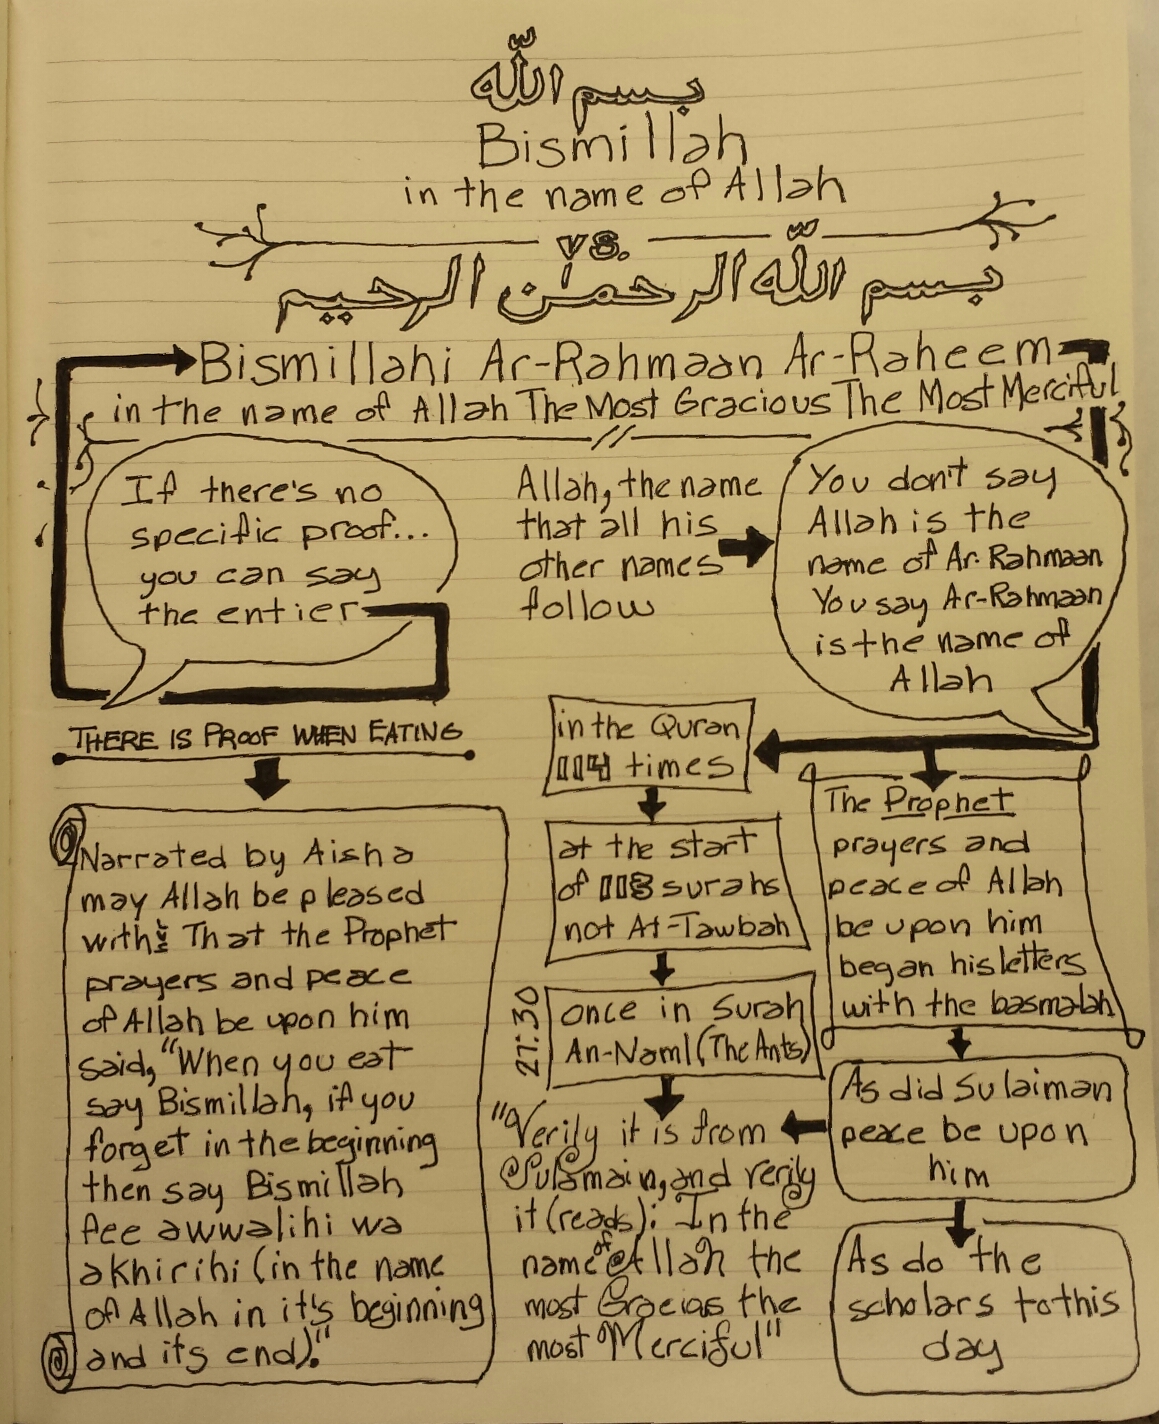 بسم الله
Bismillah
in the name of Allah
vs.
بسم الله الرحمٰن الرحيم
Bismillahi Ar-Rahmaan Ar-Raheem
in the name of Allah The Most Gracious The Most Merciful
If there's no
specific proof...
you can say
the entier
Allah, the name
that all his
other names
follow
You don't say
Allah is the
name of Ar-Rahmaan
You say Ar-Rahmaan
is the name of
Allah
THERE IS PROOF WHEN EATING
Narrated by Aisha
may Allah be pleased
with That the Prophet
prayers and peace
of Allah be upon him
said, "When you eat
say Bismillah, if you
forget in the beginning
then say Bismillah
fee awwalihi wa
akhirihi (in the name
of Allah in it's beginning
and its end)."
in the Quran
114 times
at the start
of 113 surahs
not At-Tawbah
27:30
once in Surah
An-Naml (The Ants)
"Verily it is from
Sulamain, and verily
it (reads): In the
name of Allah the
most Gracias the
most Merciful"
The Prophet
prayers and
peace of Allah
be upon him
began his letters
with the basmalah
As did Sulaiman
peace be upon
him
As do the
scholars to this
day